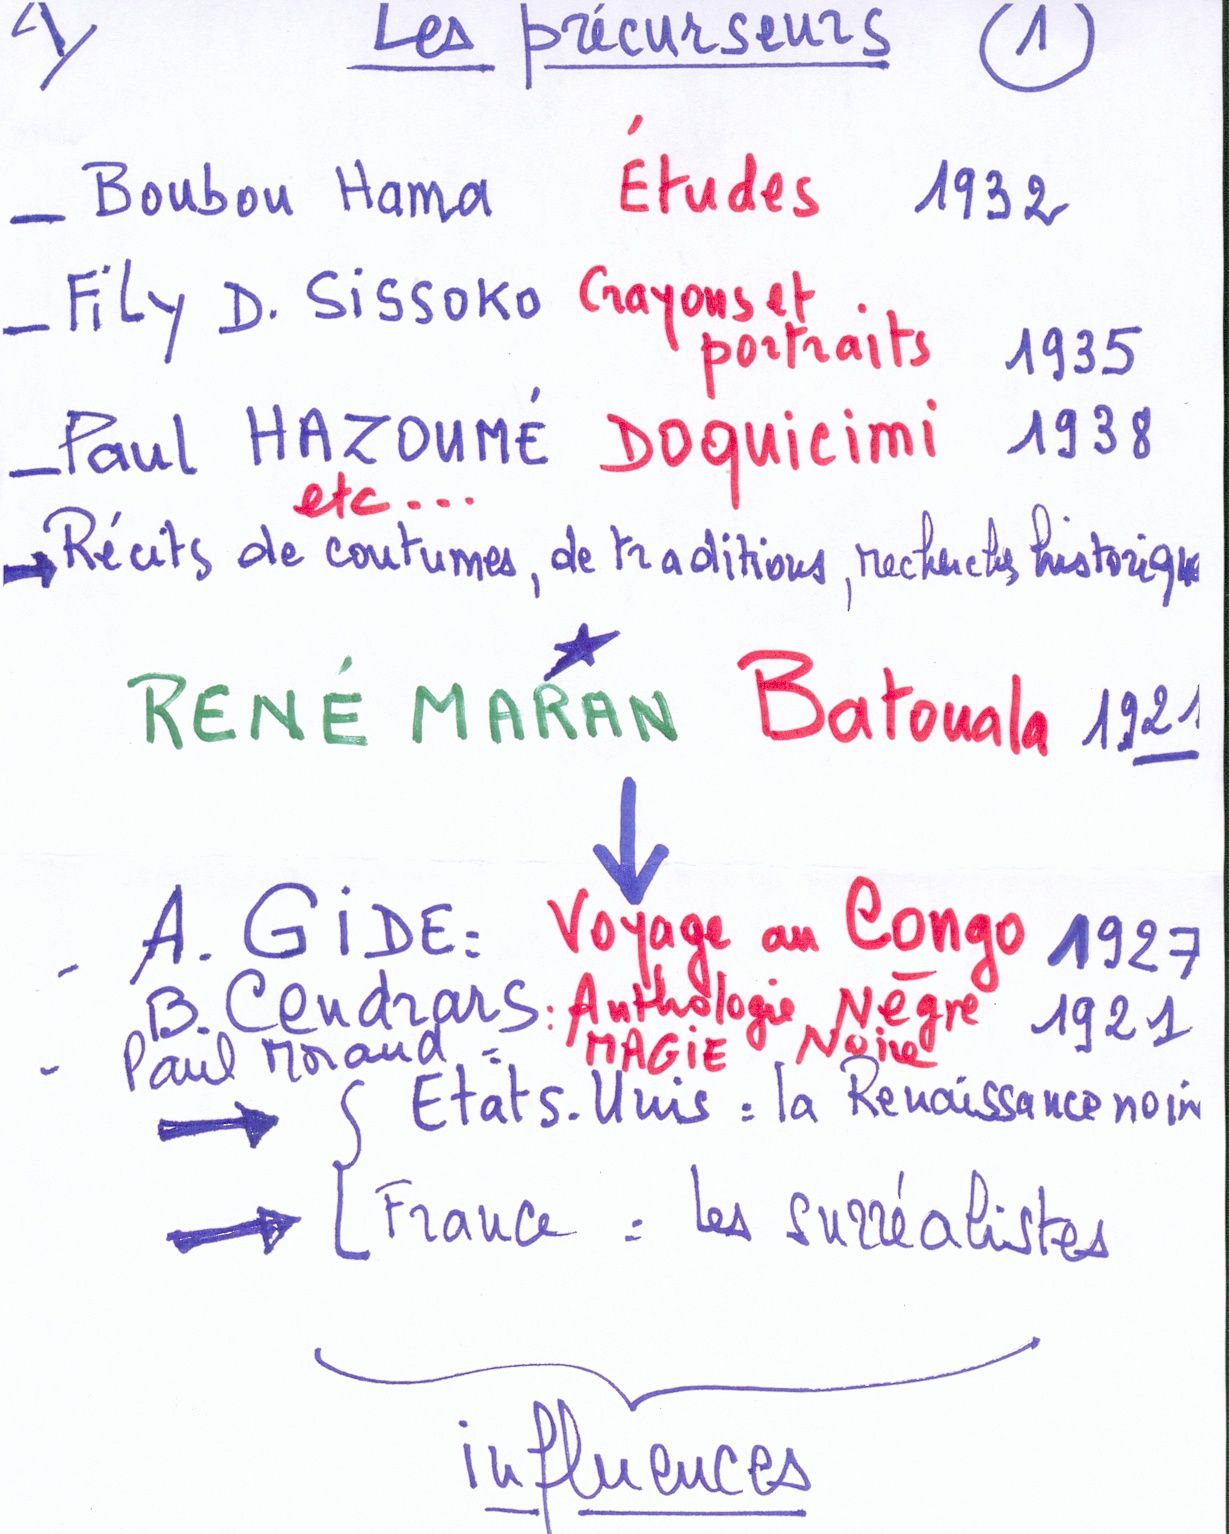 1/ Les précurseurs 1
_ Boubou Hama Études 1932
_ Fily D. Sissoko Crayons et
portraits 1935
_ Paul HAZOUMÉ Doquicimi 1938
etc...
→ Récits de coutumes, de traditions, recherches historique
RENÉ MARAN ★ Batouala 1921
↓
- A. GiDE = Voyage au Congo 1927
B. Cendrars : Anthologie Nègre 1921
- Paul Morand = MAGiE Noire
→ { Etats-Unis = la Renaissance noir
→ [ France = les surréalistes
influences